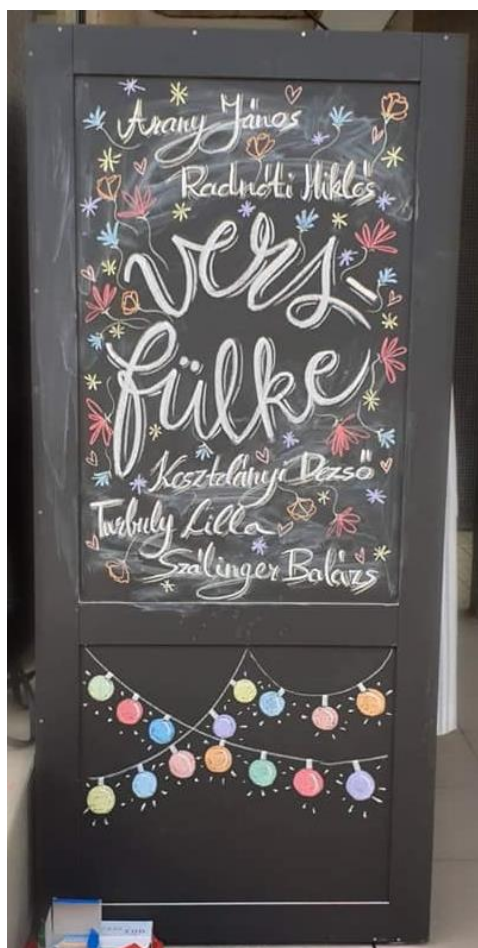 Arany János
Radnóti Miklós
vers-
fülke
Kosztolányi Dezső
Turbuly Lilla
Szálinger Balázs